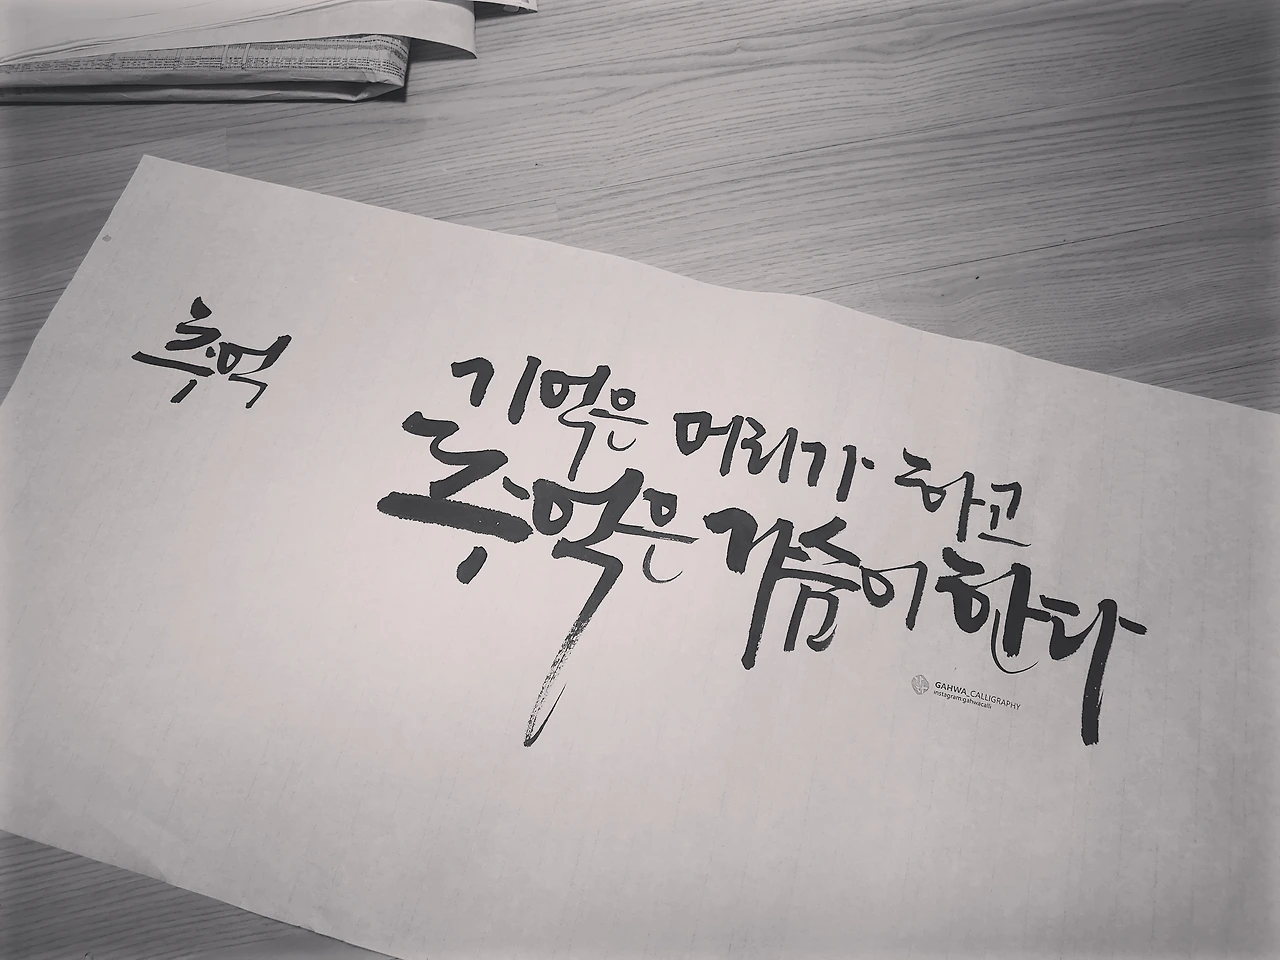 추억
기억은 머리가 하고
추억은 가슴이 한다
GAHWA_CALLIGRAPHY
instagram:gahwacalli